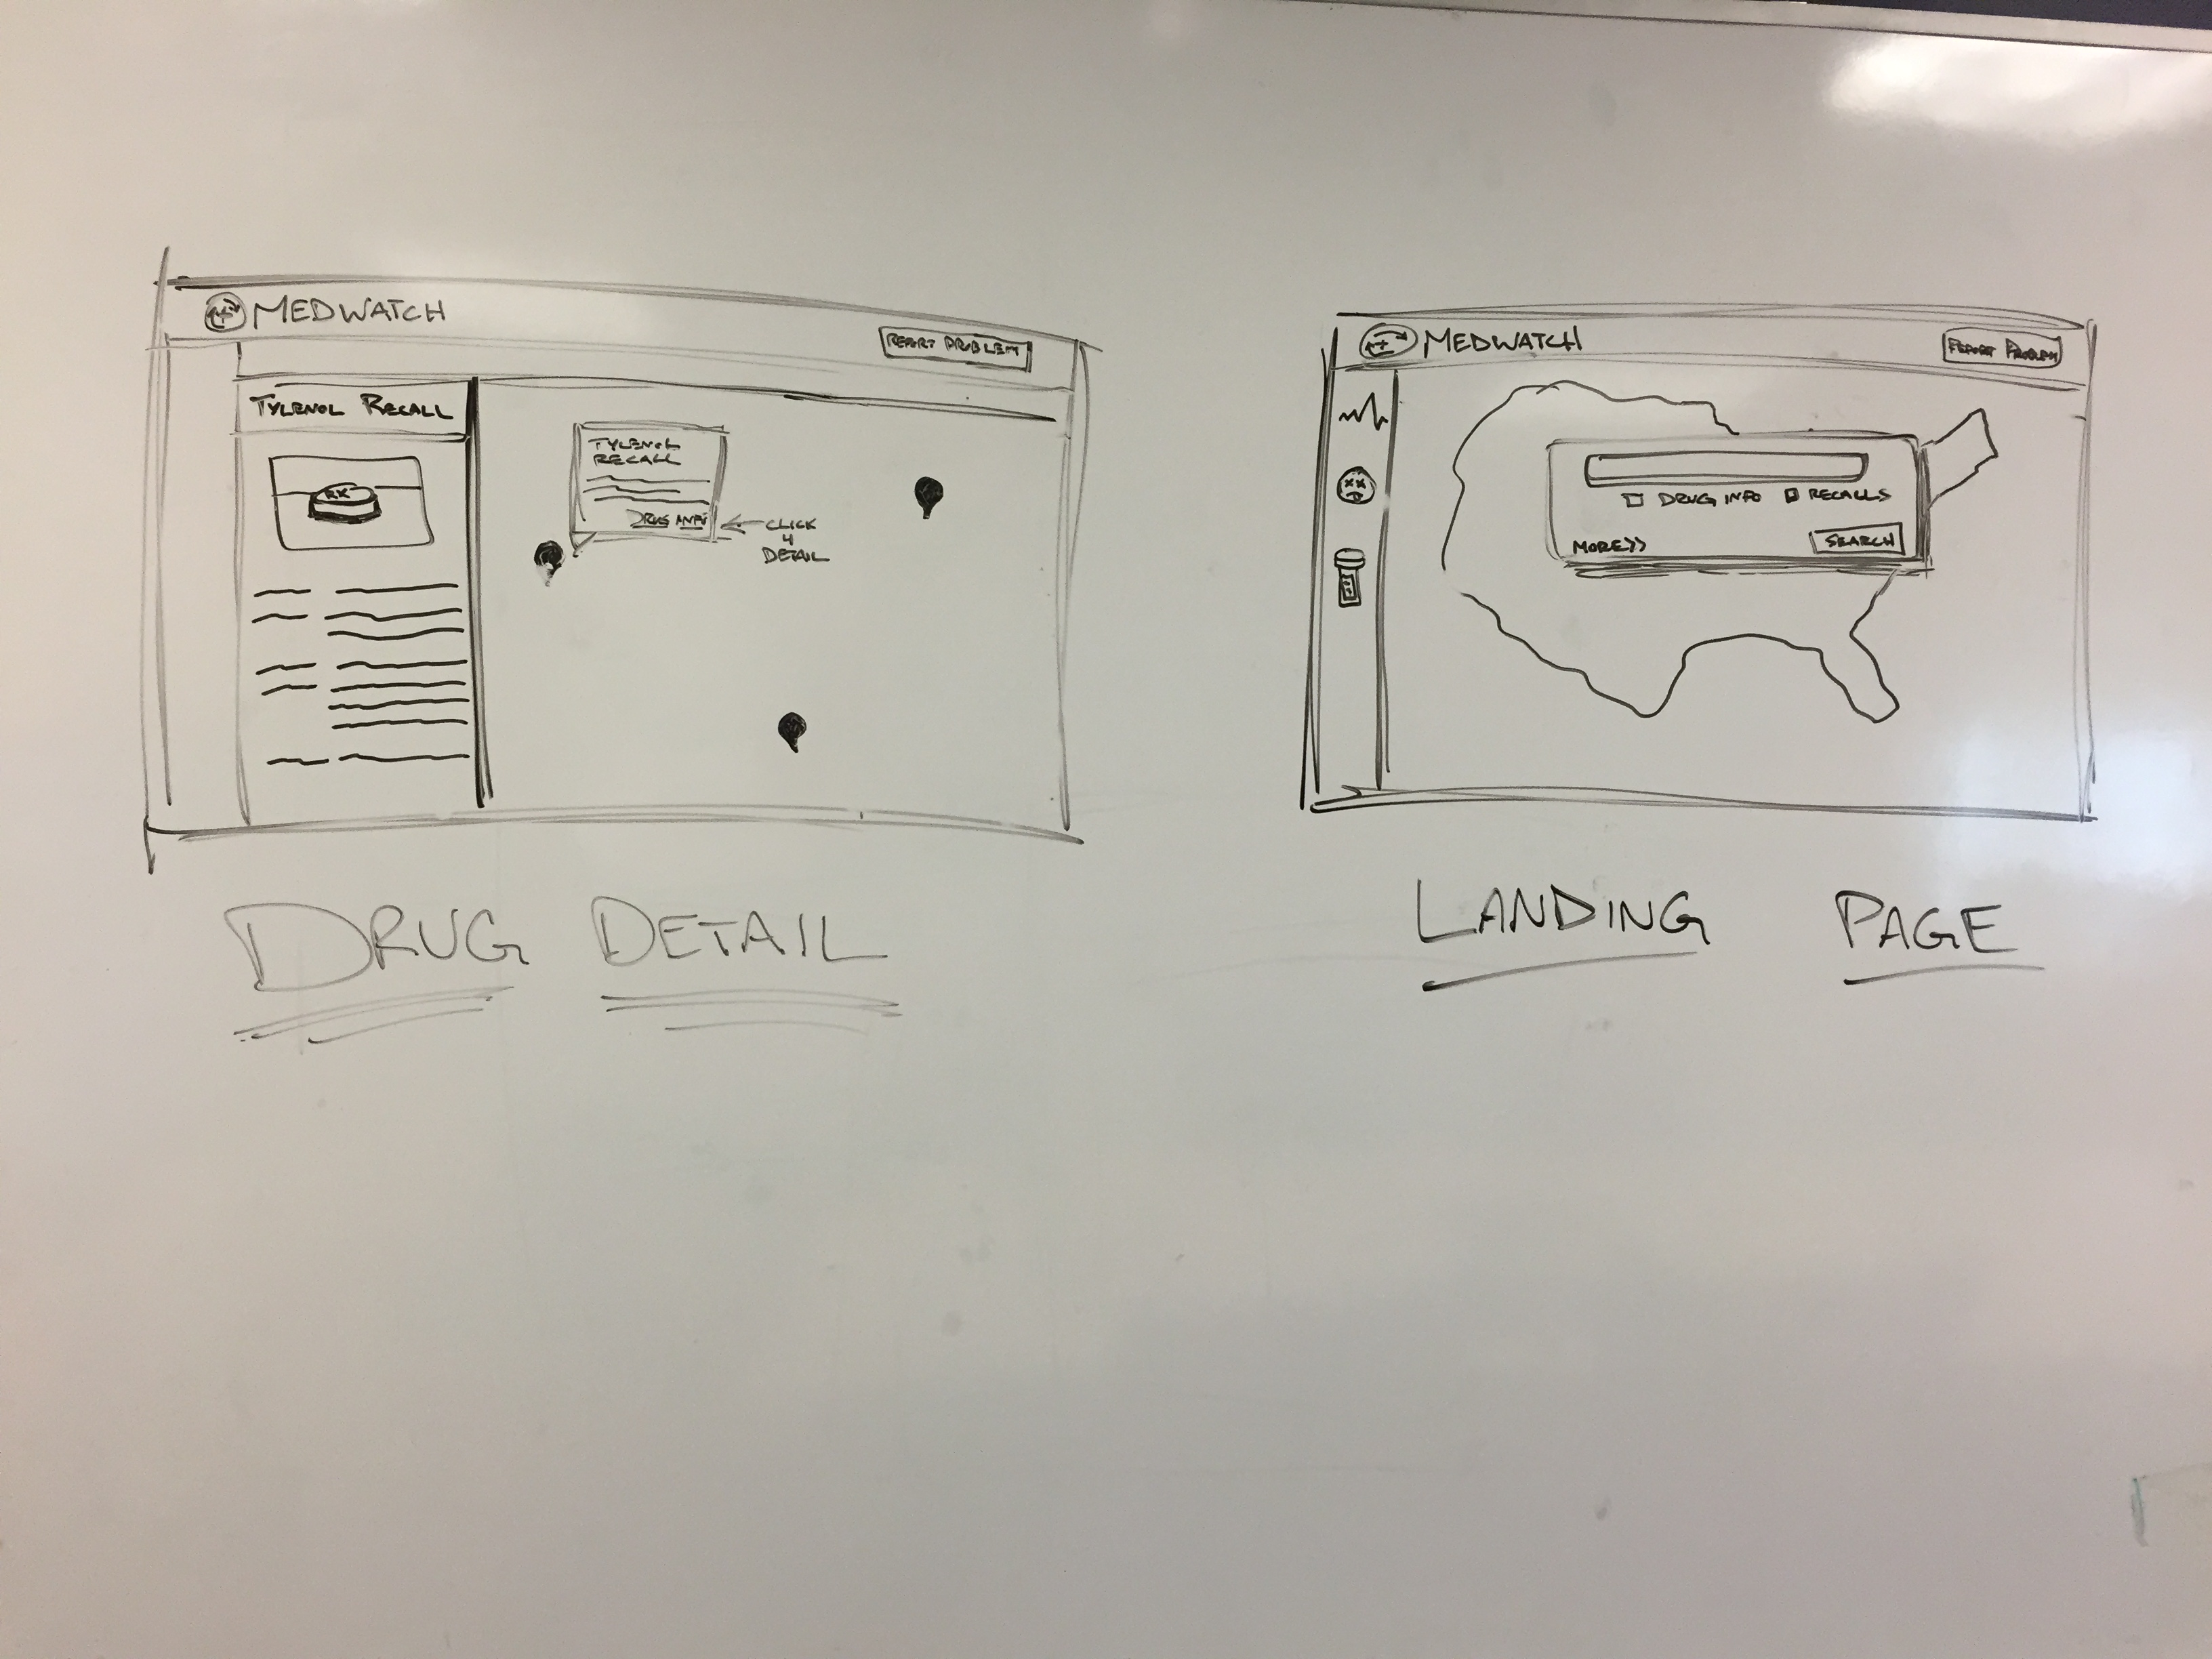 MEDWATCH
REPORT PROBLEM
TYLENOL RECALL
RX
TYLENOL
RECALL
DRUG INFO
CLICK
4
DETAIL
DRUG DETAIL
MEDWATCH
REPORT PROBLEM
DRUG INFO RECALLS
MORE>>
SEARCH
LANDING PAGE